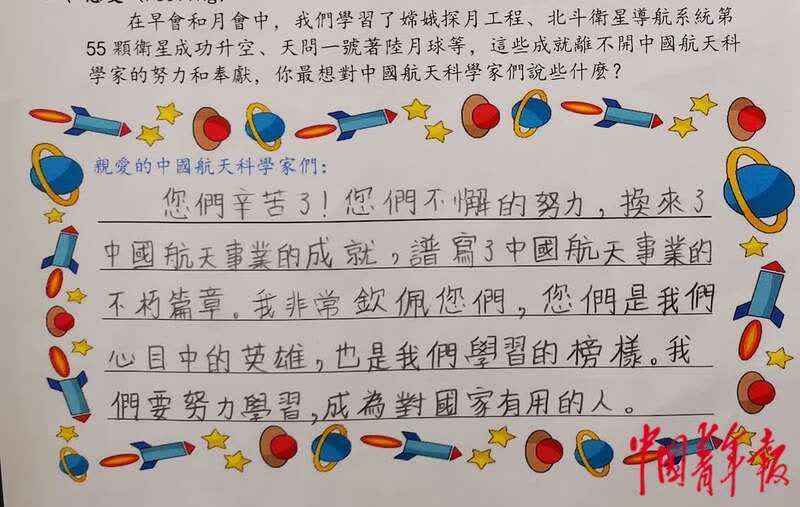 在早會和月會中，我們學習了嫦娥探月工程、北斗衛星導航系統第
55 顆衛星成功升空、天問一號著陸月球等，這些成就離不開中國航天科
學家的努力和奉獻，你最想對中國航天科學家們說些什麼？
親愛的中國航天科學家們：
您們辛苦了！您們不懈的努力，換來了
中國航天事業的成就，譜寫了中國航天事業的
不朽篇章。我非常欽佩您們，您們是我們
心目中的英雄，也是我們學習的榜樣。我
們要努力學習，成為對國家有用的人。
中國青年報